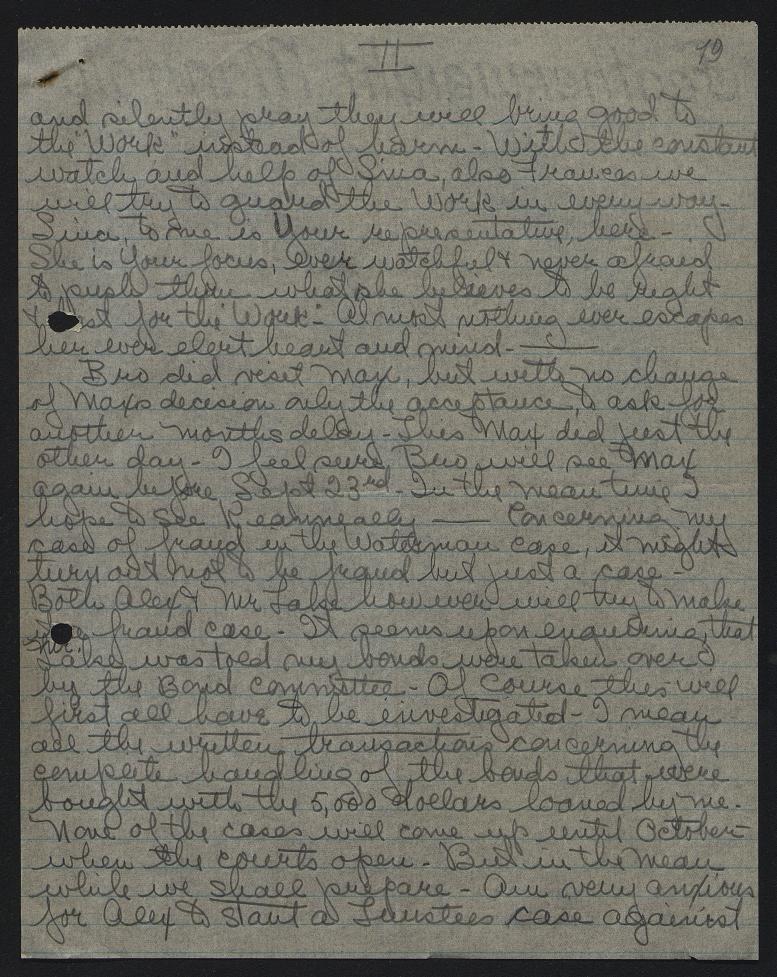 II 19
and silently pray they will bring good to
the "Work" instead of harm - With the constant
watch and help of Sina, also Frances we
will try to guard the Work in every way -
Sina, to me is Your representative, here -
She is Your focus, ever watchful & never afraid
to push thru what she believes to be right
& for the "Work". Almost nothing ever escapes
her ever alert heart and mind -
Bro did visit Max, but with no change
of Maxs decision only the acceptance to ask for
another months delay - This Max did just the
other day - I feel sure Bro will see Max
again before Sept 23rd - In the mean time I
hope to see — Concerning my
case of fraud in the Waterman case, it might
turn out not to be fraud but just a case -
Both Alex & Mr Lake however will try to make
fraud case - It seems upon enquiring, that
Mr. Lake was told my bonds were taken over
by the Bond committee - Of course this will
first all have to be investigated - I mean
all the written transactions concerning the
complete handling of the bonds that were
bought with the 5,000 dollars loaned by me.
None of the cases will come up until October
when the courts open - But in the mean
while we shall prepare - Am very anxious
for Alex to start a Trustees case against